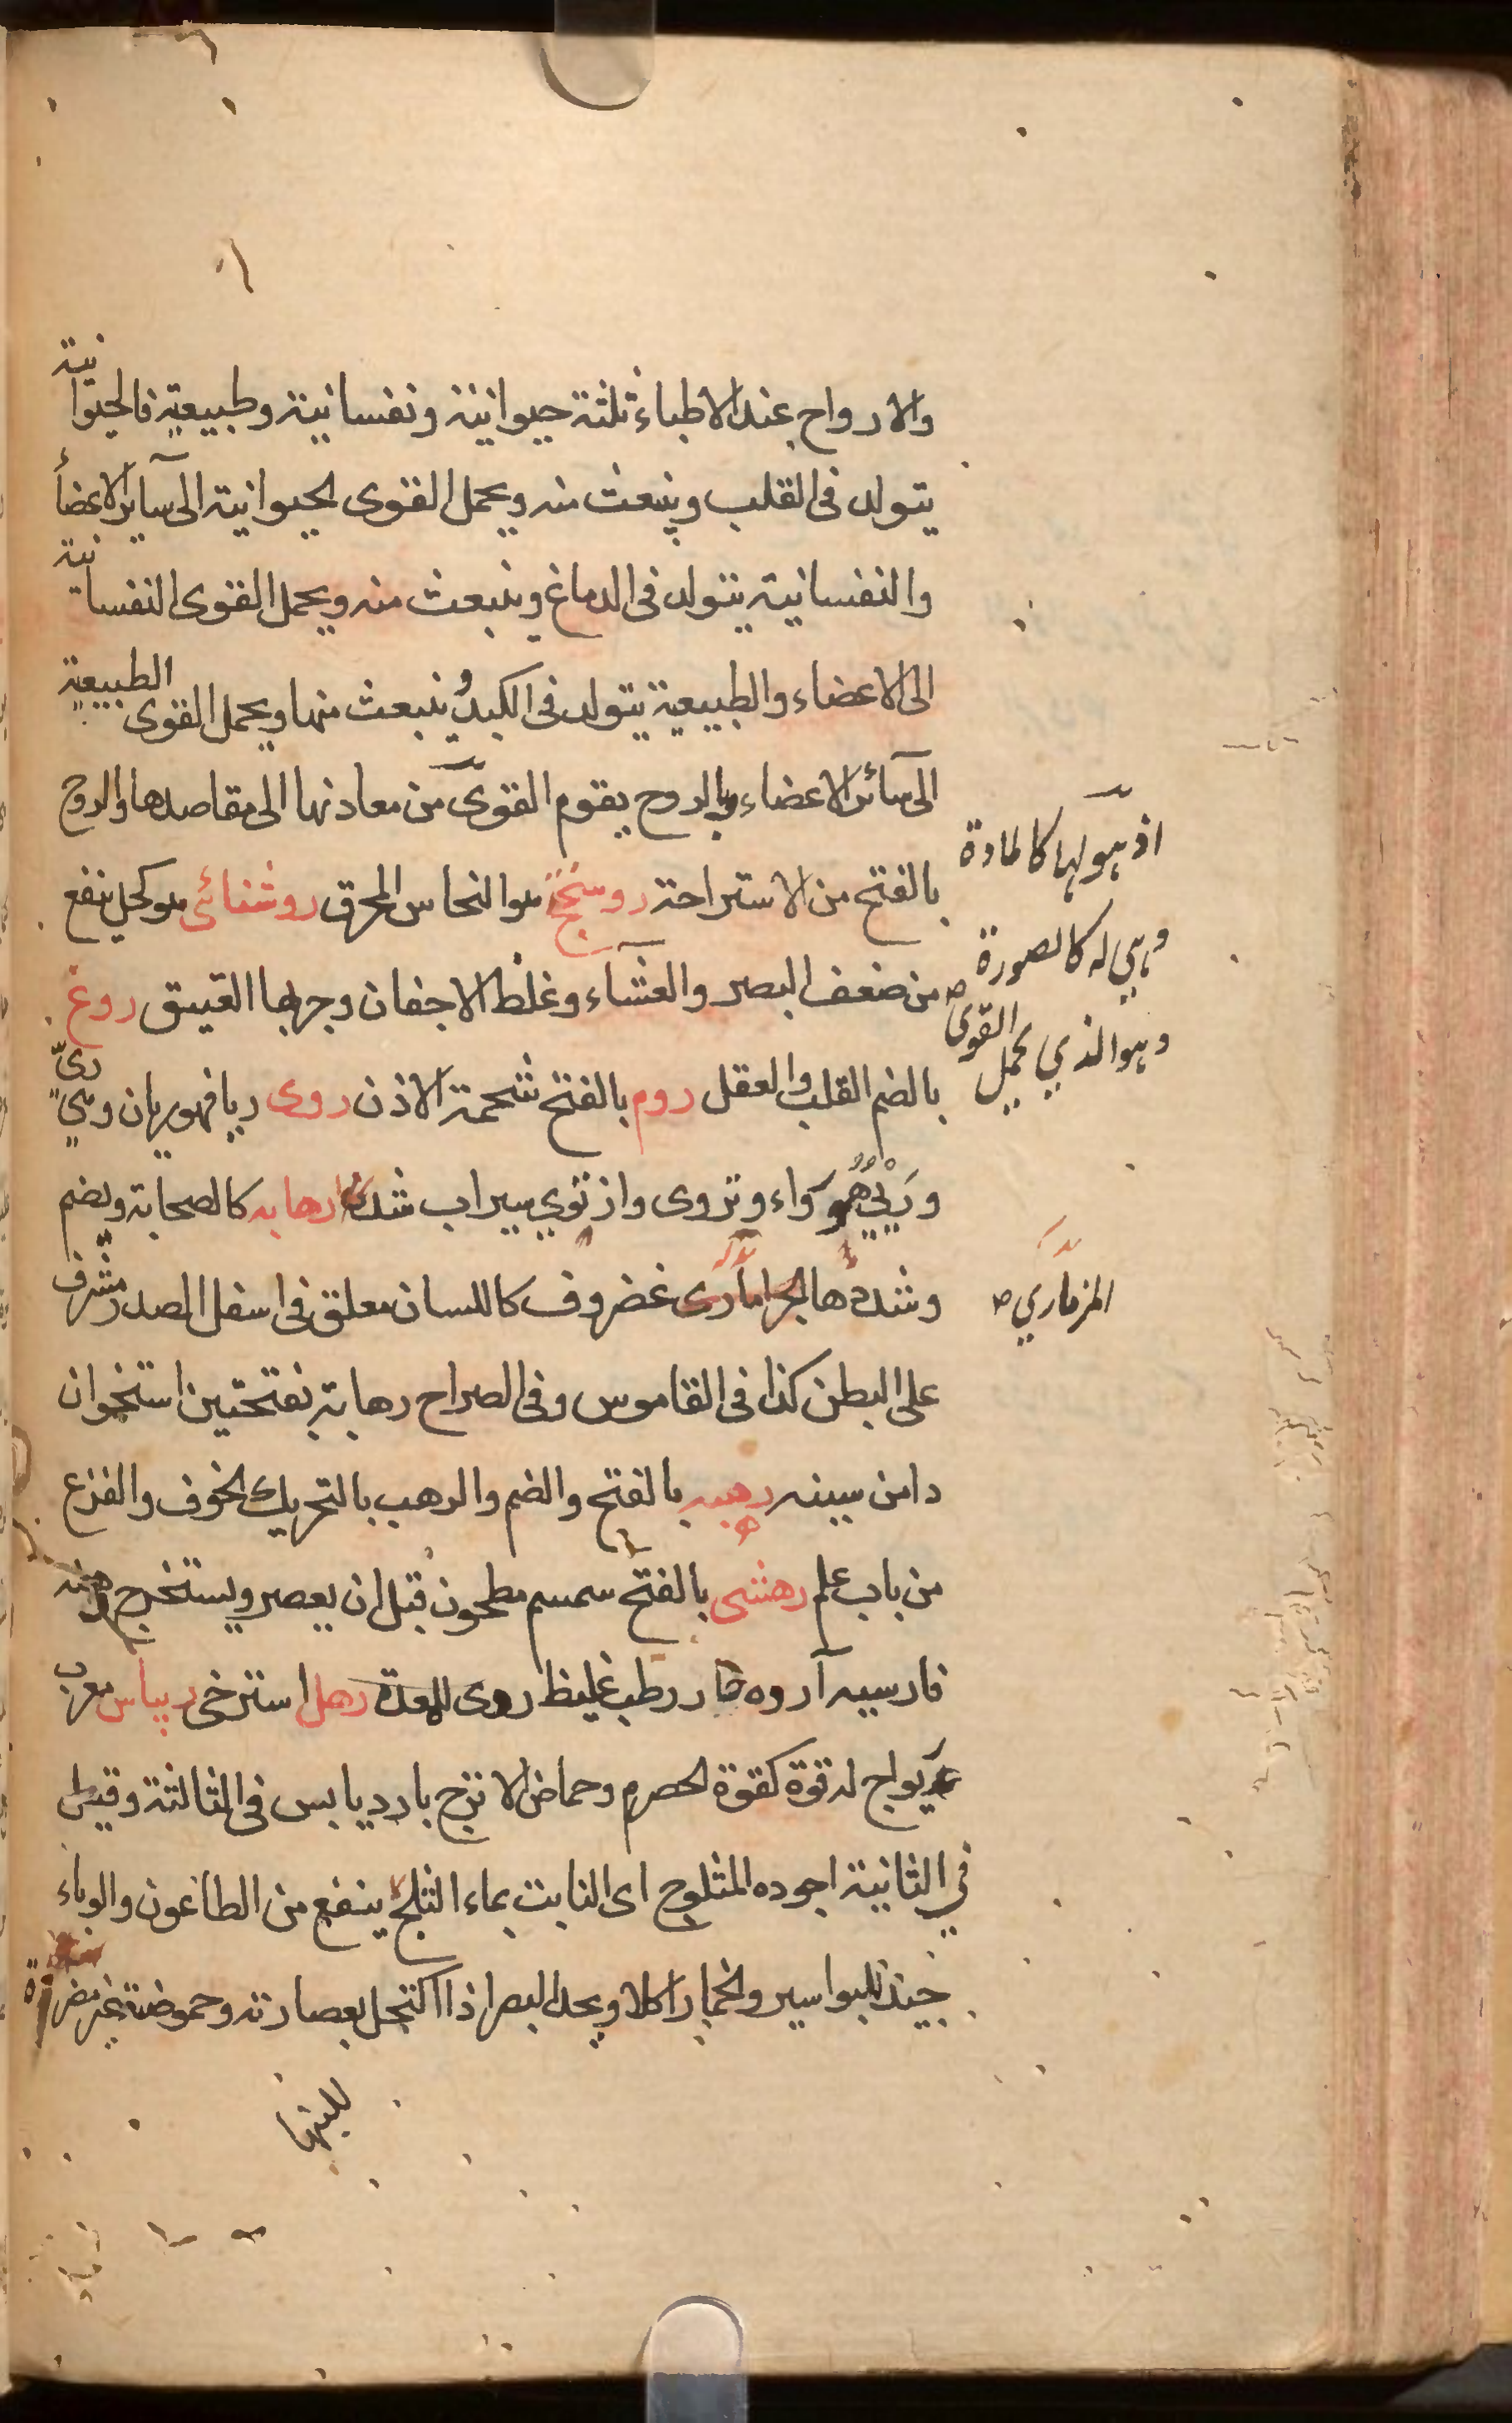 والارواح عند الاطباء ثلثة حيوانية ونفسانية وطبيعية فالحيوانية
يتولد فى القلب وينبعث منه ويحمل القوى الحيوانية الى سایر الاعضأ
والنفسانية يتولد فى الدماغ وينبعث منه ويحمل القوى النفسانية
الى الاعضاء والطبيعية يتولد فى الكبد وينبعث منها ويحمل القوى الطبيعية
الى سائر الاعضاء وبالروح يقوم القوى من معادنها الى مقاصدها والروح
بالفتح من الاستراحة روسختج هو النحاس المحرق روشنائى هو كحل ينفع
من ضعف البصر والغشآء وغلظ الاجفان وجربها العتيق روع
بالضم القلب والعقل روم بالفتح شحمة الاذن روى ريا فهو ريان وهي ريّ
وارتوي سيراب شدن رهابه كالصحابة ويضم
غضروف كاللسان معلق فى اسفل الصدر مشرف
على البطن كذا فى القاموس وفى الصراح رهابة بفتحتين استخوان
دامن سينه رهبه بالفتح والضم والرهب بالتحريك الخوف والفزع
من باب علم رهشى بالفتح سمسم مطحون قبل ان يعصر ويستخرج دهنه
فارسيه آرده حار رطب غليظ روى للمعدة رهل استرخى ريباس معرب
ريواج له قوة كقوة الحصرم وحماض الاترج بارد يابس فى الثالثة وقيل
في الثانية اجوده المثلوج اى النابت بماء الثلج ينفع من الطاعون والوباء
جيد للبواسير والخمار اكلا ويحد البصر اذا اكتحل بعصارته وحموضته غير مضرة
للينها
اذ هو لها كالمادة
وهي له كالصورة
وهو الذي يحمل القوى
المزماري